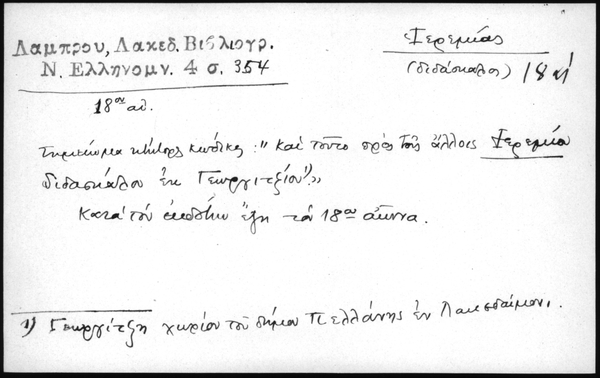 Λαμπρου, Λακεδ. Βιβλιογρ.
Ν. Ελληνομν. 4 σ. 354
Ἱερεμίας
(διδάσκαλος) 18 αἰ
18ου αἰ.
Σημείωμα κτήτορος κώδικος: "Καὶ τοῦτο πρὸς τοῖς ἄλλοις Ἱερεμίου
διδασκάλου ἐκ Γεωργιτζίου¹⁾»
Κατὰ τὸν ἐκδότην ἔζη τὸν 18ον αἰῶνα.
1) Γεωργίτζη χωρίον τοῦ δήμου Πελλάνης ἐν Λακεδαίμονι.